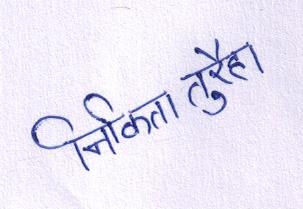 निकिता तुरैहा